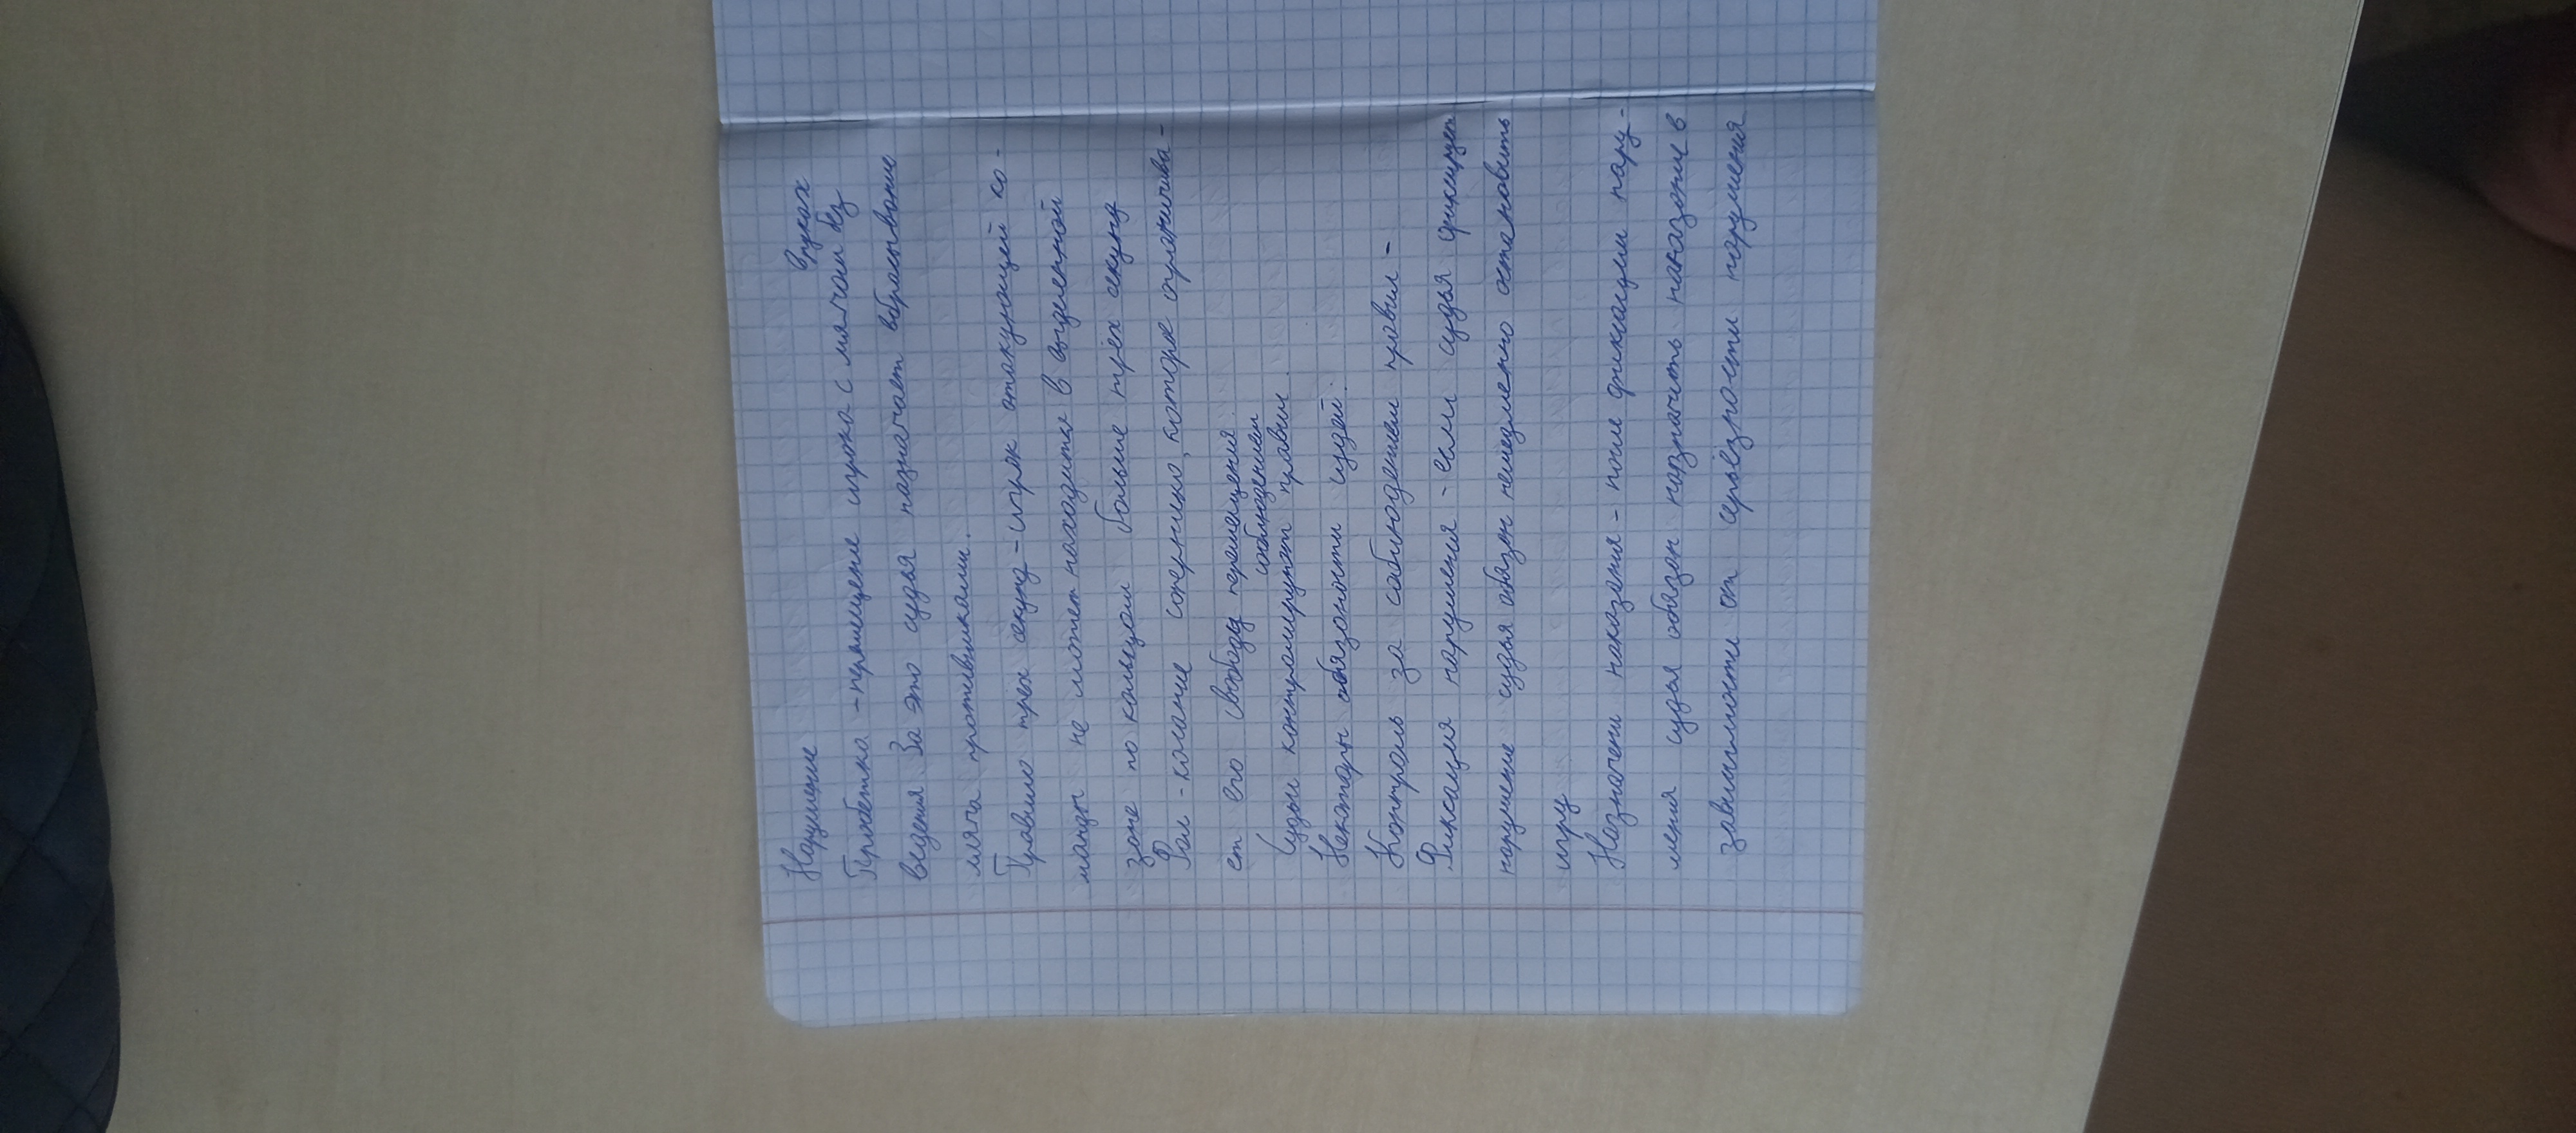 Нарушение
в руках
Пробежка - перемещение игрока с мячом без
ведения За это судья назначает вбрасывание
мяча противниками.
Правило трех секунд - игрок атакующей ко-
манды не может находится в выделенной
зоне по кольцом больше трёх секунд
Фол - косание соперника, которое ограничива-
ет его свободу перемещения
соблюдением
Судьи контролируют правил.
Некоторы обязаности судей:
Контроль за саблюдением правил -
Фиксация нарушения - если судья фиксирует
нарушение судья обязан немедленно остановить
игру
Назначени наказания - после фиксации нару-
шения судья обязан назначить наказание в
зависимости от серьёзности нарушения